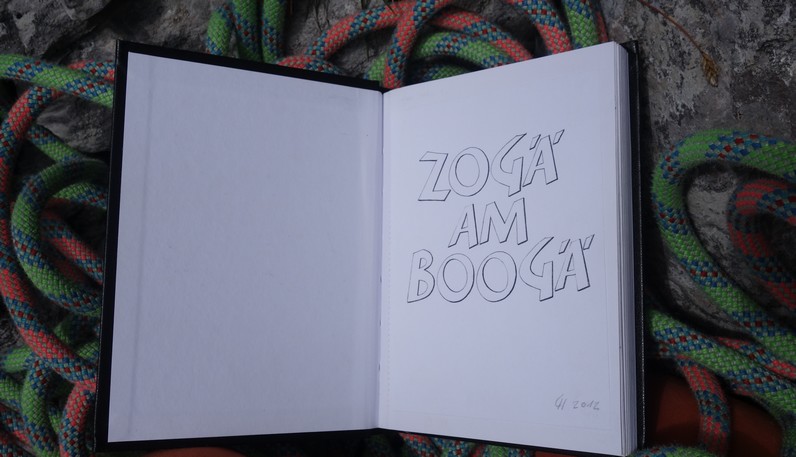 ZOGÄ
AM
BOOGÄ
2012